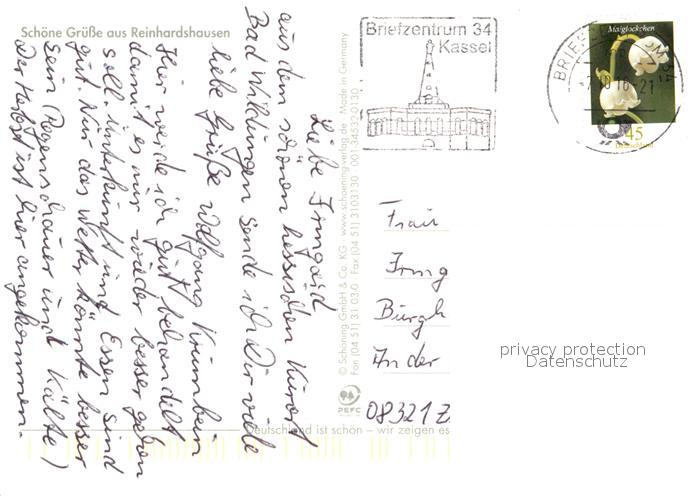 Schöne Grüße aus Reinhardshausen
Liebe Irmgard
aus dem schönen hessischen Kurort
Bad Wildungen sende ich Dir viele
liebe Grüße Wolfgang Krumbein
Hier werde ich gut behandelt
damit es mir wieder besser gehen
soll. Unterkunft und Essen sind
gut. Nur das Wetter könnte besser
sein (Regenschauer und Kälte)
Der Herbst ist hier angekommen.
© Schöning GmbH & Co. KG · www.schoening-verlag.de · Made in Germany
Fon (04 51) 31 03-0 · Fax (04 51) 3103130
PEFC
Deutschland ist schön – wir zeigen es
Briefzentrum 34
Kassel
Maiglöckchen
45
Deutschland
Frau
Irmg
Burgh
An der
08321 Z
privacy protection
Datenschutz